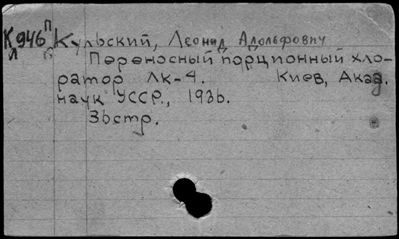 К946П Кульский, Леонид Адольфович
Л
Переносный порционный хло-
ратор ЛК-4. Киев, Акад.
наук УССР, 1936.
36стр.